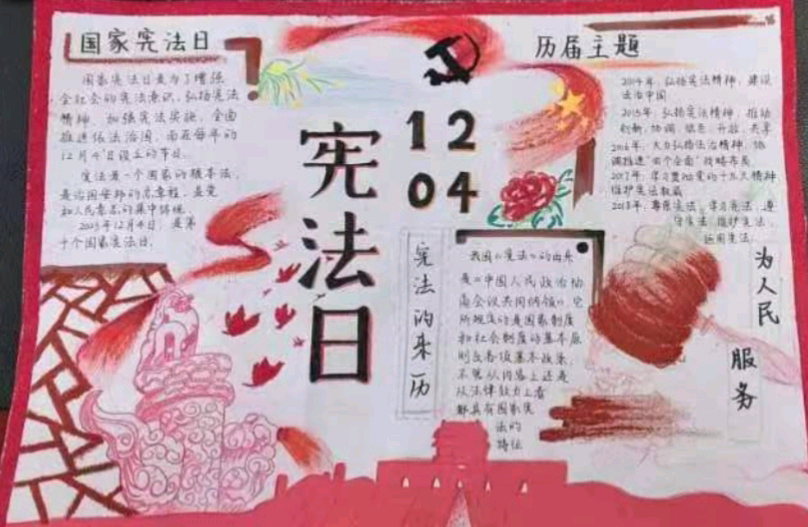 国家宪法日
国家宪法日是为了增强
全社会的宪法意识、弘扬宪法
精神、加强宪法实施、全面
推进依法治国,而在每年的
12月4日设立的节日。
宪法是一个国家的根本法,
是治国安邦的总章程,是党
和人民意志的集中体现。
2023年12月4日,是第
十个国家宪法日。
宪法日
12
04
历届主题
2014年:弘扬宪法精神,建设
法治中国
2015年:弘扬宪法精神,推动
创新、协调、绿色、开放、共享
2016年:大力弘扬法治精神,协
调推进"四个全面"战略布局
2017年:学习贯彻党的十九大精神
维护宪法权威
2018年:尊崇宪法、学习宪法、遵
守宪法、维护宪法、
运用宪法
宪法的来历
我国《宪法》的由来
是《中国人民政治协
商会议共同纲领》它
所规定的是国家制度
和社会制度的基本原
则及各项基本政策,
不管从内容上还是
从法律效力上看
都具有国家宪
法的
特征
为人民
服务